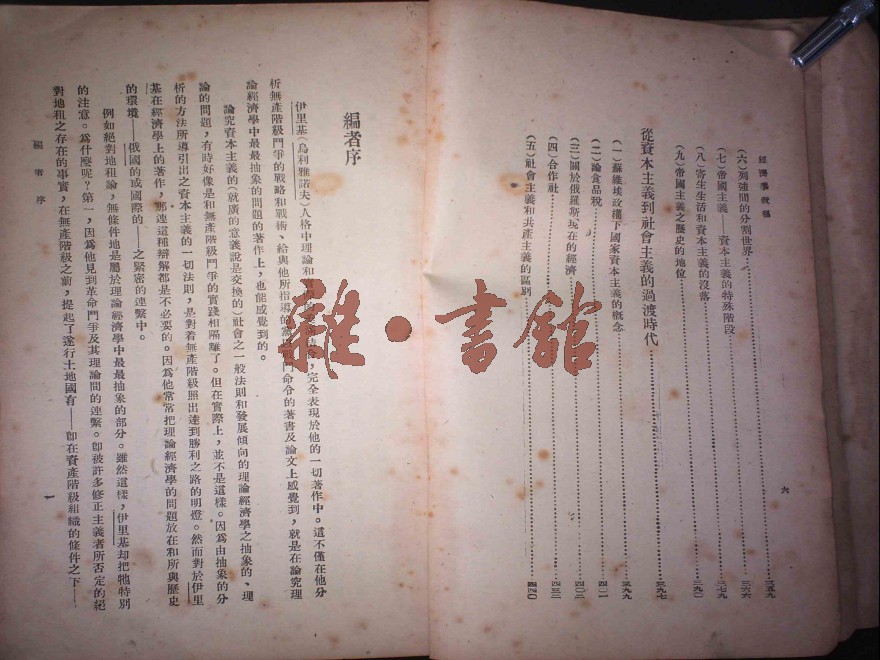 經濟學教程
(六)列強間的分割世界……三五九
(七)帝國主義——資本主義的特殊階段……三六六
(八)寄生生活和資本主義的沒落……三七九
(九)帝國主義之歷史的地位……三九〇
從資本主義到社會主義的過渡時代……三九七
(一)蘇維埃政權下國家資本主義的概念……三九九
(二)論食品稅……四〇一
(三)關於俄羅斯現在的經濟……四〇三
(四)合作社……四三二
(五)社會主義和共產主義的區別……四四〇
六
編者序
伊里基(烏利雅諾夫)人格中理論和,完全表現於他的一切著作中。這不僅在他分
析無產階級鬥爭的戰略和戰術、給與他所指導的鬥命令的著書及論文上感覺到,就是在論究理
論經濟學中最最抽象的問題的著作上,也能感覺到的。
論究資本主義的(就廣的意義說是交換的)社會之一般法則和發展傾向的理論經濟學之抽象的、理
論的問題,有時好像是和無產階級鬥爭的實踐相隔離了。但在實際上,並不是這樣。因爲由抽象的分
析的方法所導引出之資本主義的一切法則,是對着無產階級照出達到勝利之路的明燈。然而對於伊里
基在經濟學上的著作,那連這種辯解都是不必要的。因爲他常常把理論經濟學的問題放在和所與歷史
的環境——俄國的或國際的——之緊密的連繫中。
例如絕對地租論,無條件地是屬於理論經濟學中最最抽象的部分。雖然這樣,伊里基却把牠特別
的注意。爲什麼呢?第一,因爲他見到革命鬥爭及其理論間的連繫。卽被許多修正主義者所否定的絕
對地租之存在的事實,在無產階級之前,提起了遂行土地國有——卽在資產階級組織的條件之下——
編者序
一
雜·書館